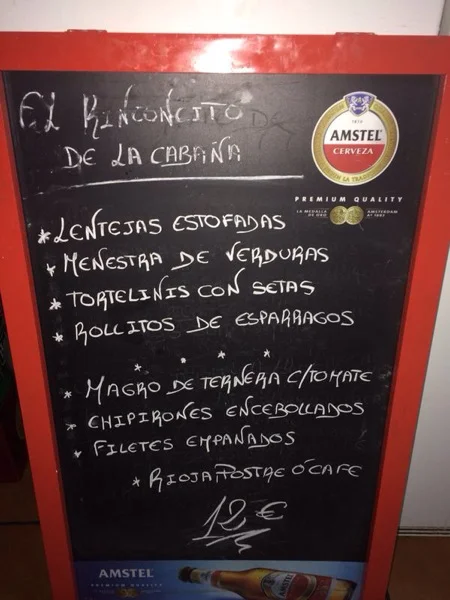 EL RINCONCITO
DE LA CABAÑA
1870
AMSTEL
CERVEZA
PREMIUM QUALITY
LA MEDALLA DE ORO
AMSTERDAM
*LENTEJAS ESTOFADAS
*MENESTRA DE VERDURAS
*TORTELINIS CON SETAS
*ROLLITOS DE ESPARRAGOS
* * * *
* MAGRO DE TERNERA C/TOMATE
* CHIPIRONES ENCEBOLLADOS
* FILETES EMPAÑADOS
* RIOJA, POSTRE Ó CAFE
12€
AMSTEL
PREMIUM QUALITY
AMSTEL